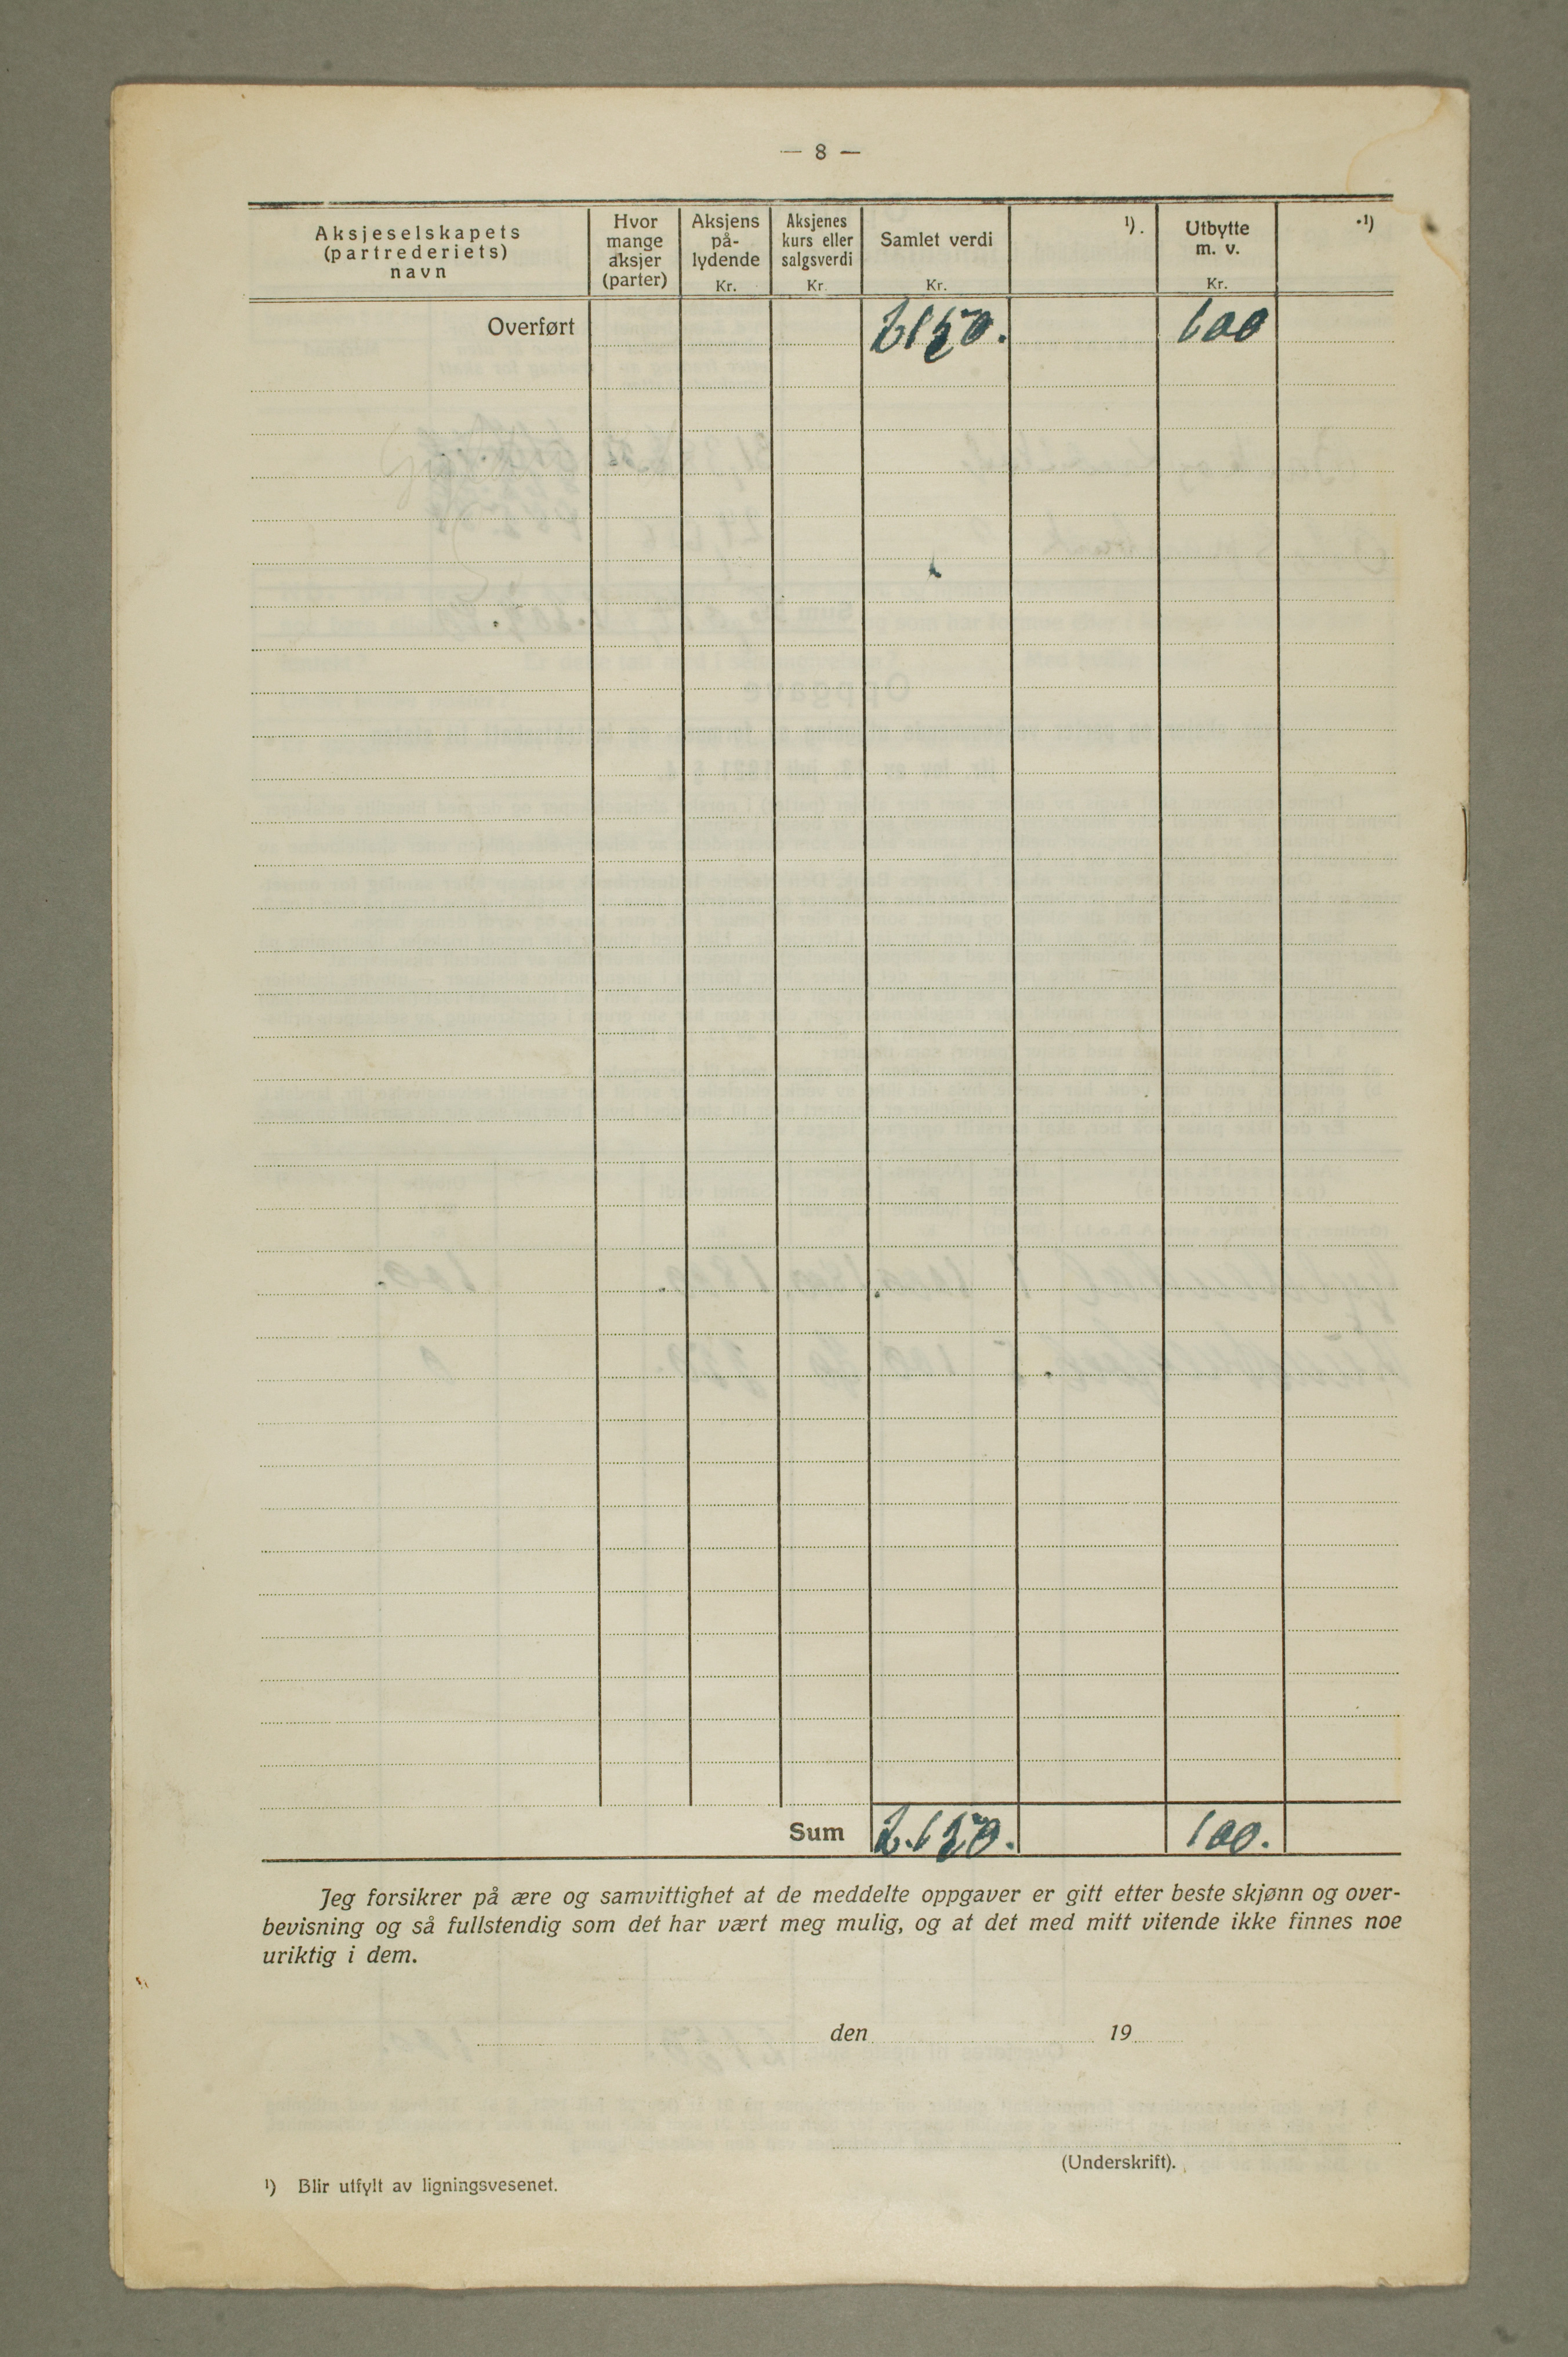 — 8 —
Aksjeselskapets
(partrederiets)
navn
Hvor
mange
aksjer
(parter)
Aksjens
på-
lydende
Kr.
Aksjenes
kurs eller
salgsverdi
Kr
Samlet verdi
Kr.
¹).
Utbytte
m. v.
Kr.
¹)
Overført 2150. 100
Sum 2.150. 100.
Jeg forsikrer på ære og samvittighet at de meddelte oppgaver er gitt etter beste skjønn og over-
bevisning og så fullstendig som det har vært meg mulig, og at det med mitt vitende ikke finnes noe
uriktig i dem.
den 19
(Underskrift).
¹) Blir utfylt av ligningsvesenet.